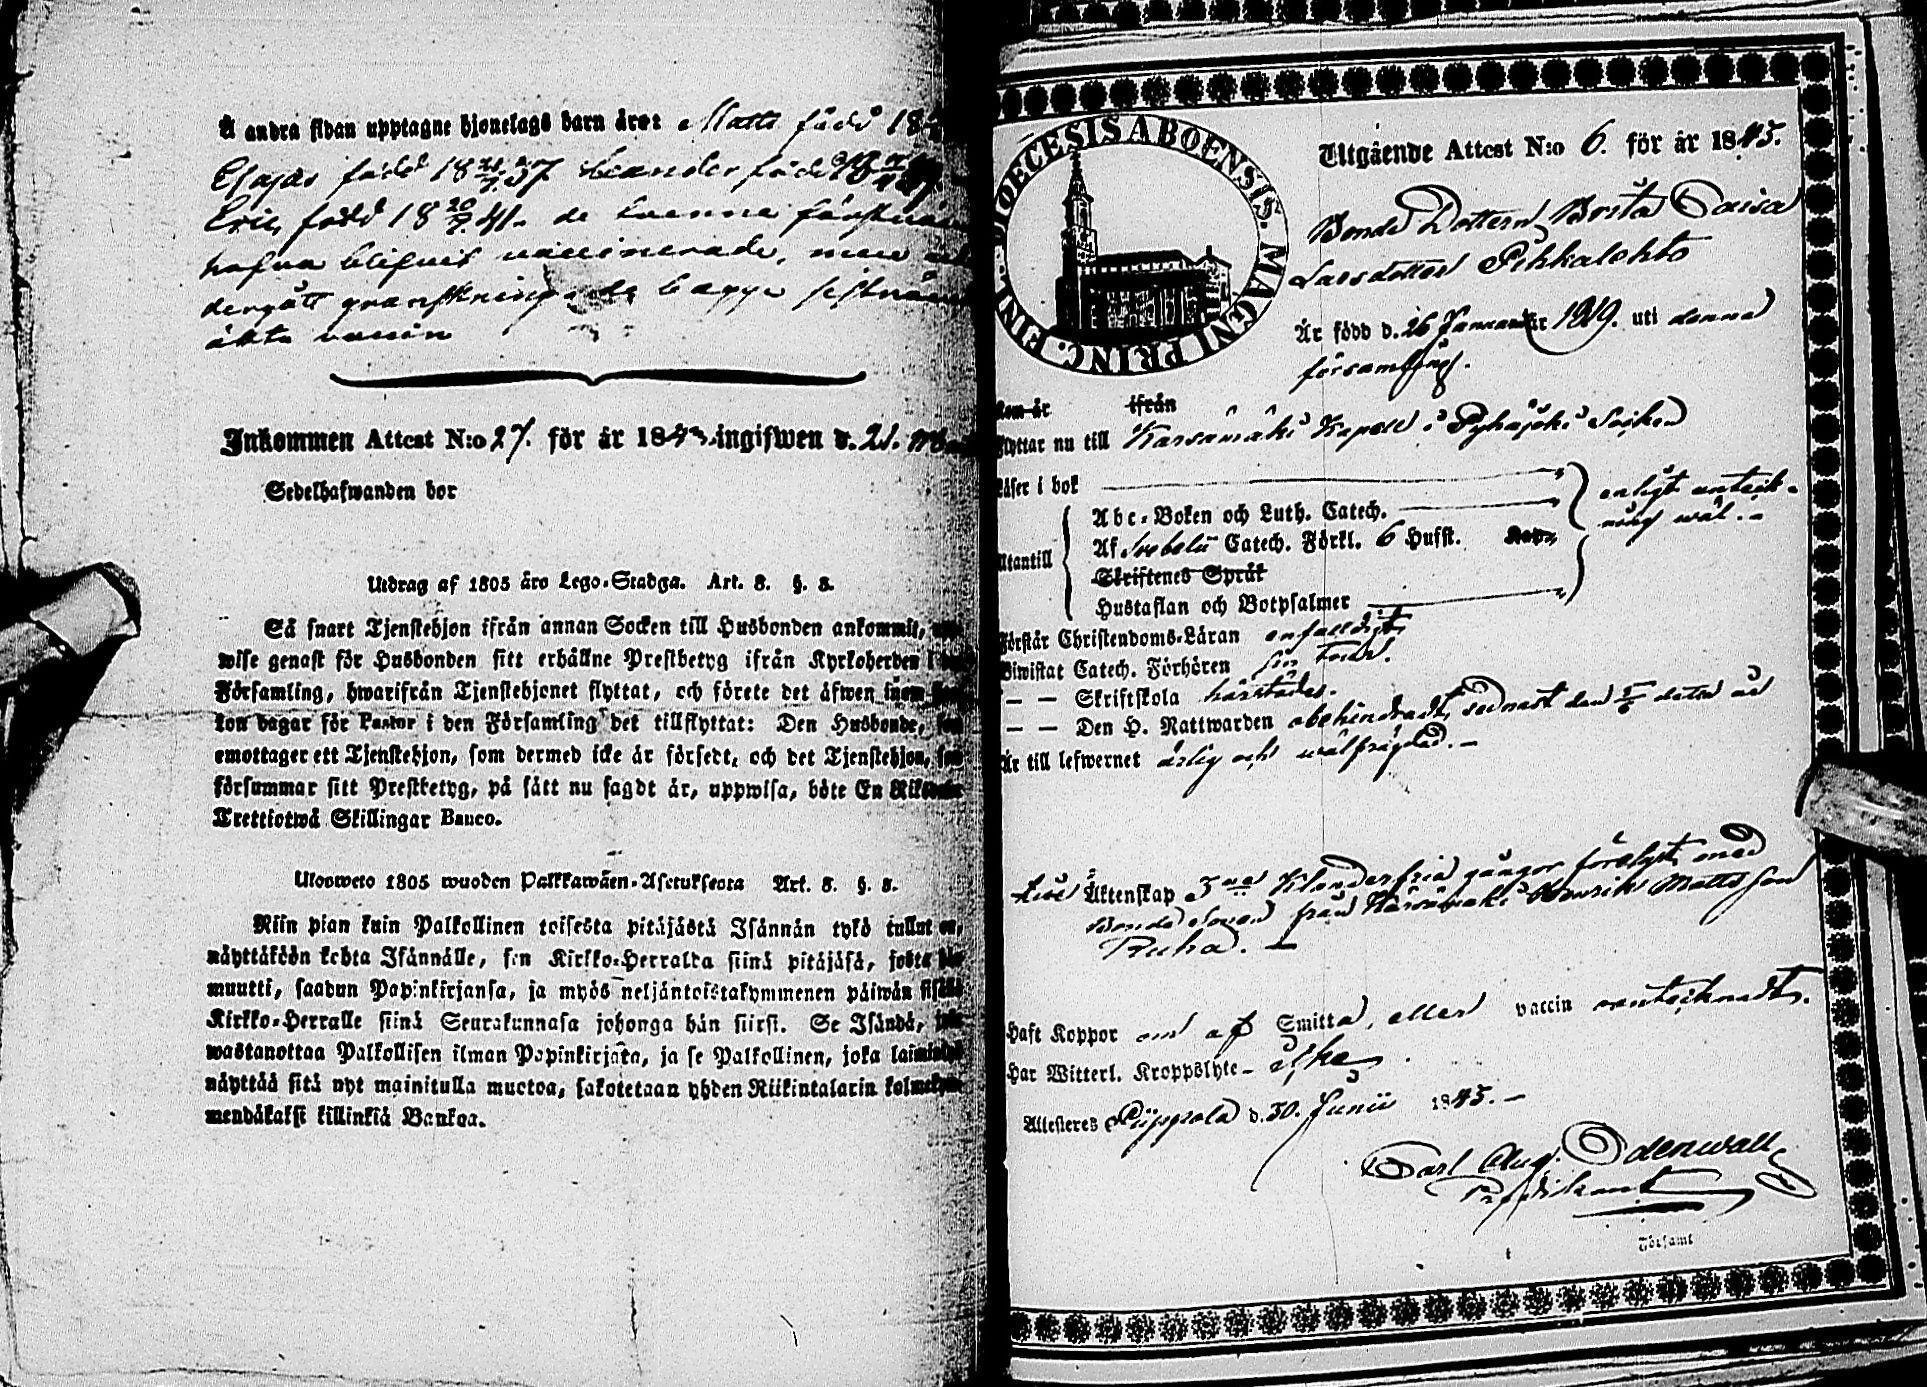 Å andra sidan upptagne hjonelags barn äro: Matts född 18
Esajas född 18 37 Leander född
Eric, född 18 20/7 41. de tvenne förstnäm
hafva blifvit vaccinerade, men
dergått granskning, de bägge sistnäm
äkta vaccin
Inkommen Attest N:o 27. för år 1843. ingifwen d. 21.
Sedelhafwanden bor
Utdrag af 1805 års Lego-Stadga. Art. 8. §. 8.
Så snart Tjenstehjon ifrån annan Socken till Husbonden ankommit,
wise genast för Husbonden sitt erhållne Prestbetyg ifrån Kyrkoherden i
Församling, hwarifrån Tjenstehjonet flyttat, och förete det äfwen inom
ton dagar för Pastor i den Församling det tillflyttat: Den Husbonde,
emottager ett Tjenstehjon, som dermed icke är försedt, och det Tjenstehjon,
försummar sitt Prestbetyg, på sätt nu sagdt är, uppwisa, böte En Riksdaler
Trettiotwå Skillingar Banco.
Ulosweto 1805 wuoden Palkkawäen-Asetuksesta Art. 8. §. 8.
Niin pian kuin Palkollinen toisesta pitäjästä Isännän tykö tullut on,
näyttäköön kohta Isännälle, sen Kirkko-Herralta siinä pitäjäsä, josta
muutti, saadun Papinkirjansa, ja myös neljäntoistakymmenen päiwän sisällä
Kirkko-Herralle siinä Seurakunnasa johonga hän siirsi. Se Isändä, joka
wastanottaa Palkollisen ilman Papinkirjata, ja se Palkollinen, joka laiminlyö
näyttää sitä nyt mainitulla muotoa, sakotetaan yhden Riikintalarin kolmekym-
mendäkaksi killinkiä Bankoa.
DIOECESIS ABOENSIS. MAGNI PRINC. FINL.
Utgående Attest N:o 6. för år 1845.
Bonde Dottern Brita Caisa
Larsdotter Pihkalehto
Är född d. 26 Januarii år 1819. uti denna
församling.
kom år ifrån
flyttar nu till Kärsämäki Kapell i Pyhäjoki Socken
Läser i bok
Abc-Boken och Luth. Catech.
enligt anteck-
ning wäl.
Utantill
Af Svebelii Catech. Förkl. 6 Hufst. Kap.
Skriftenes Språk
Hustaflan och Botpsalmer
Förstår Christendoms-Läran enfaldigt
Biwistat Catech. Förhören sin tour.
— — Skriftskola härstädes.
— — Den H. Nattwarden obehindradt, sednast den detta år
Är till lefwernet ärlig och wälfrägdad.
till Äktenskap 3ne Klanderfria gångor förelyst med
Bonde Sonen från Kärsämäki Henrik Matts son
Ruha.
Haft Koppor om af Smitta, eller vaccin oantecknadt.
Har Witterl. Kroppslyte icke.
Attesteres Piippola d. 30. Junii 1845.
Carl Aug. Odenwall
Predikant
Församl